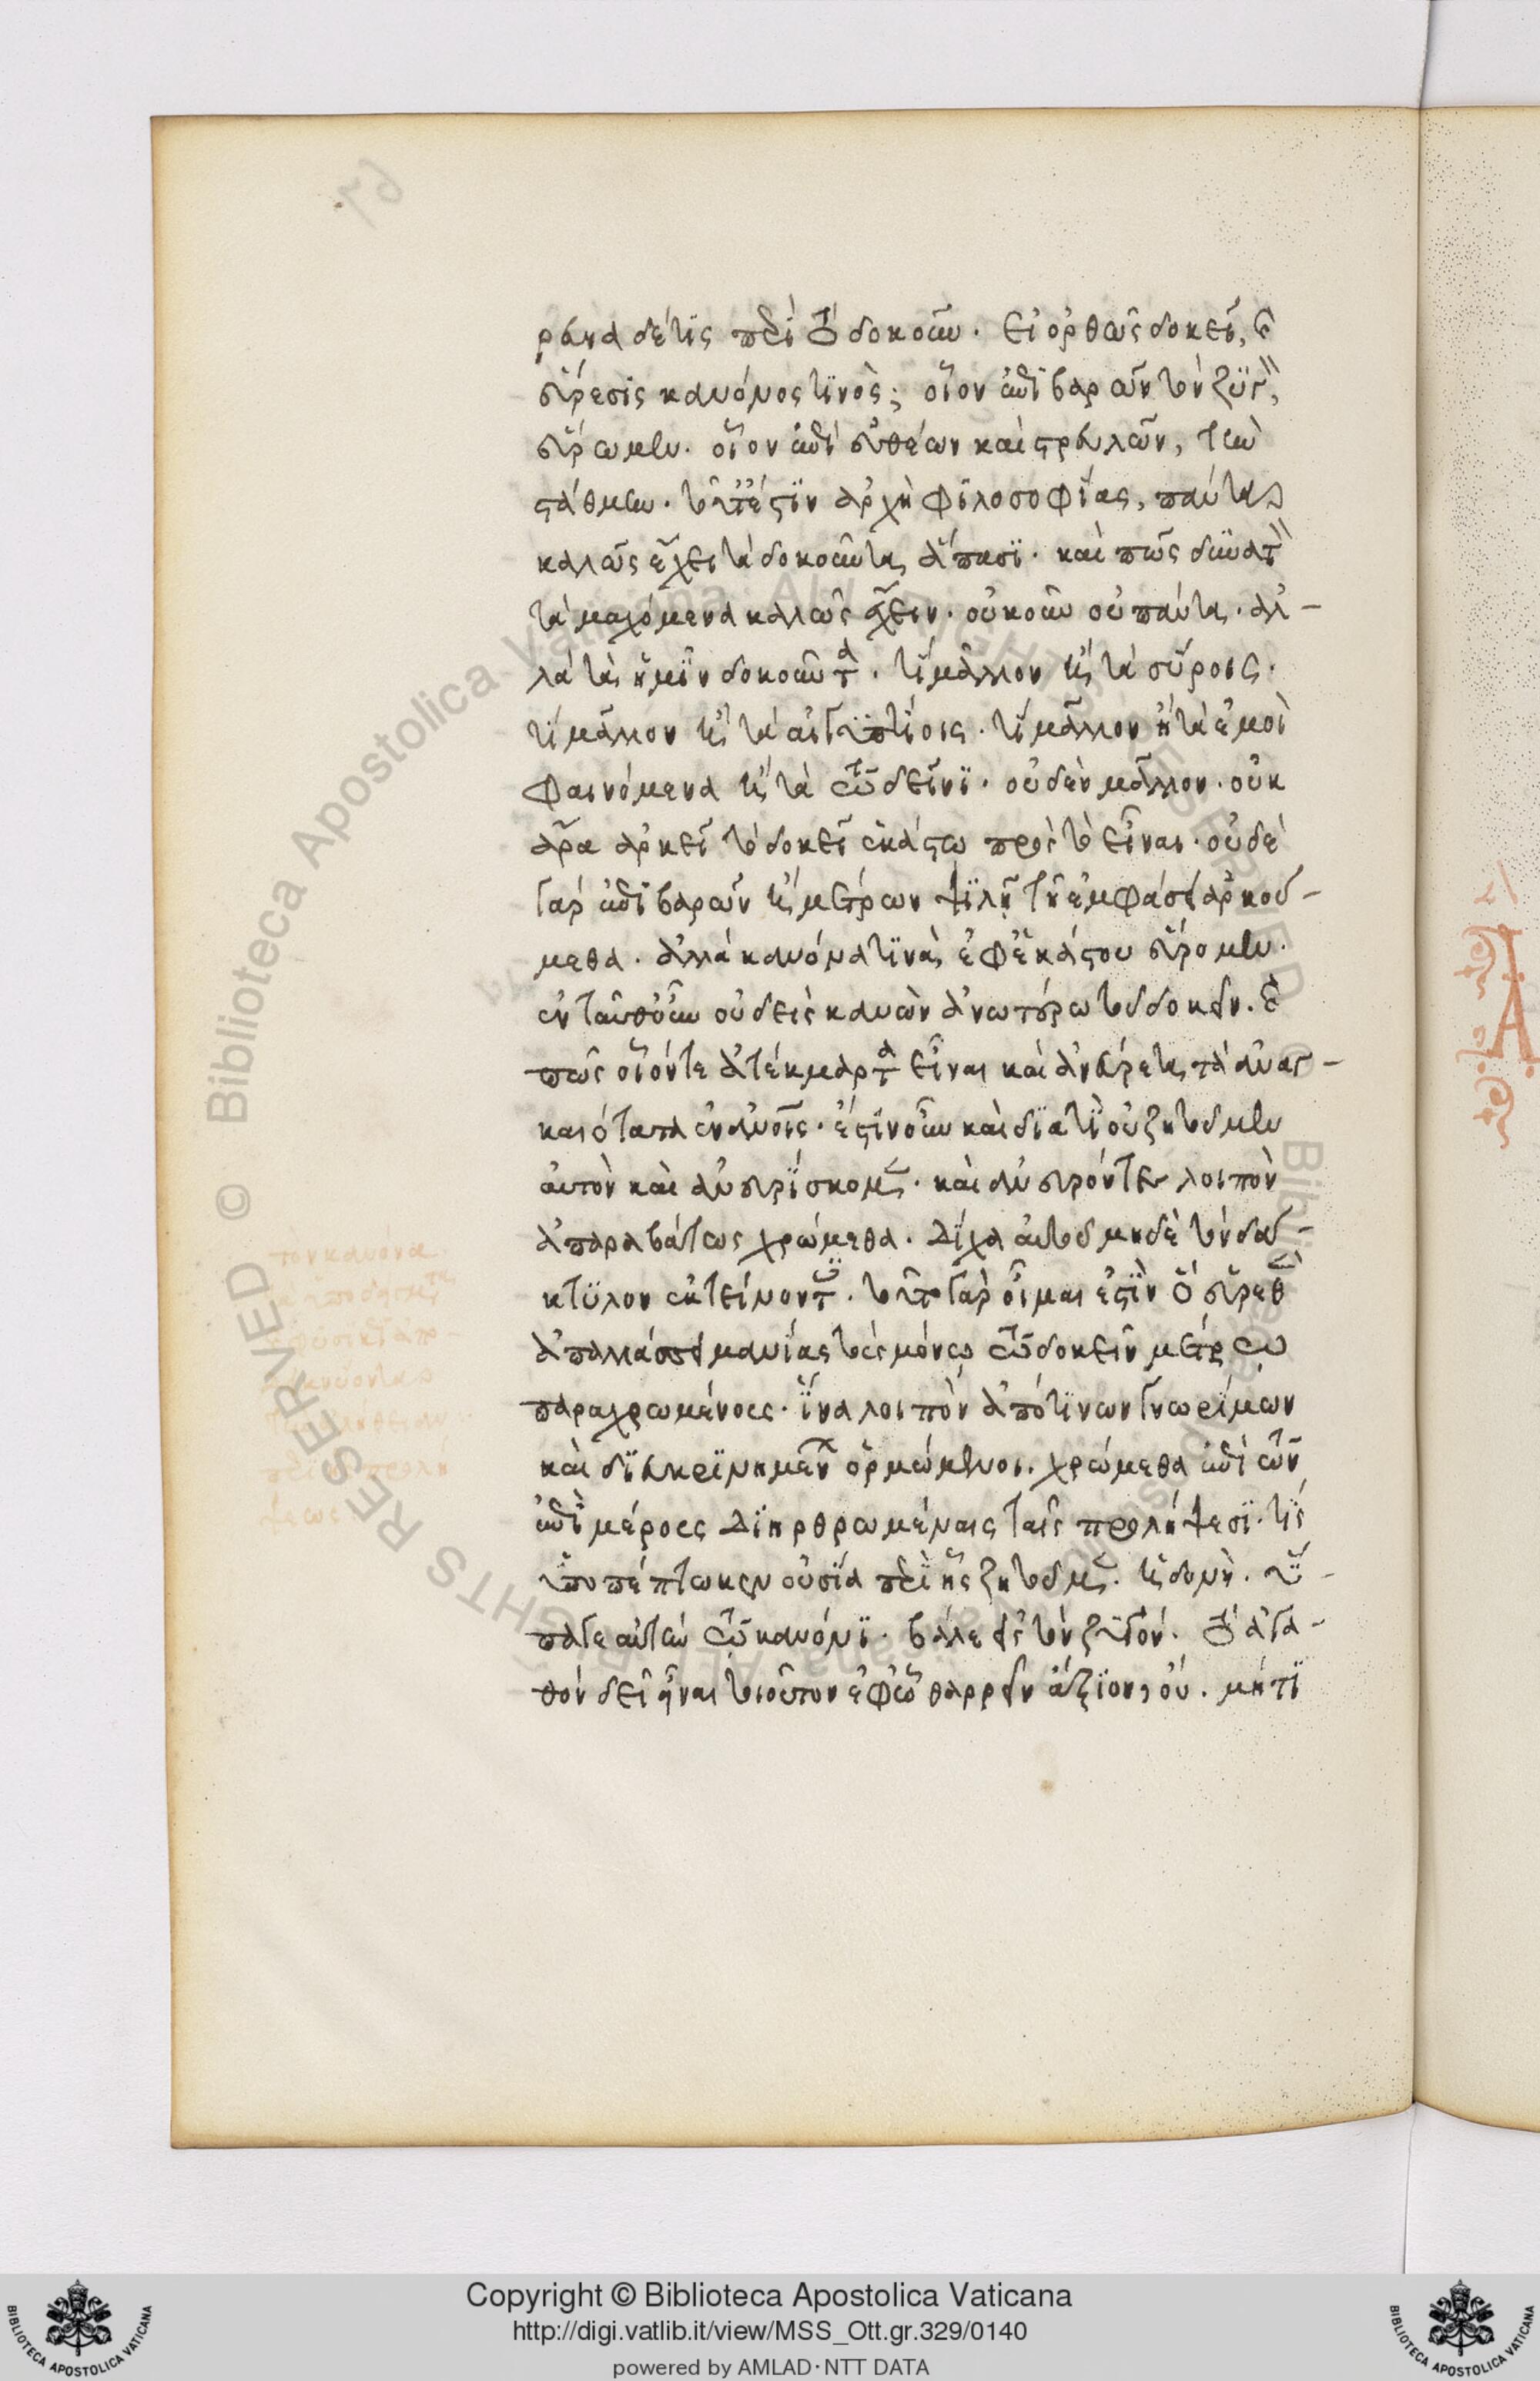 ρευνα δέ τις περὶ τὸ δοκοῦν. εἰ ὀρθῶς δοκεῖ, καὶ
εὕρεσις κανόνος τινὸς; οἷον ἐπὶ βαρῶν τὸν ζυγὸν
εὕρωμεν. οἷον ἐπὶ εὐθέων καὶ στρεβλῶν, τὴν
στάθμην. τοῦτ' ἔστιν ἀρχὴ φιλοσοφίας, πάντα
καλῶς ἔχει τὰ δοκοῦντα ἅπασι. καὶ πῶς δύναται
τὰ μαχόμενα καλῶς ἔχειν. οὐκοῦν οὐ πάντα. ἀλ-
λὰ τὰ ἡμῖν δοκοῦντα. τί μᾶλλον ἢ τὰ σύροις.
τί μᾶλλον ἢ τὰ αἰγυπτίοις. τί μᾶλλον ἢ τὰ ἐμοὶ
φαινόμενα ἢ τὰ τῷ δεῖνι. οὐδὲν μᾶλλον. οὐκ
ἄρα ἀρκεῖ τὸ δοκεῖ ἑκάστω πρὸς τὸ εἶναι. οὐδὲ
γὰρ ἐπὶ βαρῶν ἢ μέτρων ψιλῇ τῇ ἐμφάσει ἀρκού-
μεθα. ἀλλὰ κανόνα τινὰ ἐφ' ἑκάστου εὕρομεν.
ἐνταῦθ' οὖν οὐδεὶς κανὼν ἀνωτέρω τοῦ δοκεῖν. καὶ
πῶς οἷόν τε ἀτέκμαρτα εἶναι καὶ ἀνεύρετα τὰ ἀναγ-
καιότατα ἐν ἀνθρώποις. ἔστιν οὖν καὶ διατί οὐ ζητοῦμεν
αὐτὸν καὶ ἀνευρίσκομεν. καὶ ἀνευρόντες λοιπὸν
ἀπαραβάτως χρώμεθα. δίχα αὐτοῦ μηδὲ τὸν δά-
κτυλον ἐκτείνοντες. τοῦτο γὰρ οἶμαι ἐστὶν ὃ εὑρεθὲν
ἀπαλλάσσει μανίας τοὺς μόνω τῷ δοκεῖν μέτρω
παραχρωμένους. ἵνα λοιπὸν ἀπό τινων γνωρίμων
καὶ διευκρινημένων ὁρμώμενοι. χρώμεθα ἐπὶ τῶν
ἐπὶ μέρους διηρθρωμέναις ταῖς προλήψεσι. τίς
ὑποπέπτωκεν οὐσία περὶ ἧς ζητοῦμεν. ἡδονὴ. ὕ-
παγε αὐτὴν τῷ κανόνι. βάλε εἰς τὸν ζυγόν. τὸ ἀγα-
θὸν δεῖ εἶναι τοιοῦτον ἐφ' ᾧ θαρρεῖν ἄξιον, οὐ. μήτι
Copyright © Biblioteca Apostolica Vaticana
http://digi.vatlib.it/view/MSS_Ott.gr.329/0140
powered by AMLAD·NTT DATA